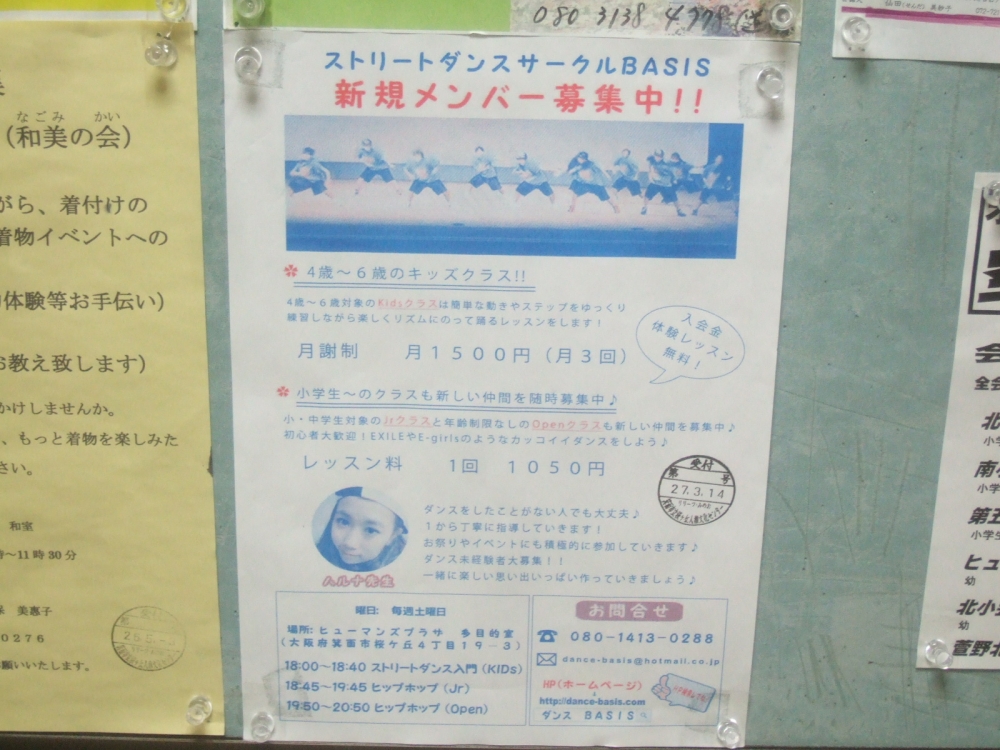 080 3138
ストリートダンスサークルBASIS
新規メンバー募集中!!
4歳～6歳のキッズクラス!!
4歳～6歳対象のKidsクラスは簡単な動きやステップをゆっくり
練習しながら楽しくリズムにのって踊るレッスンをします！
月謝制 月１５００円（月３回）
入会金
体験レッスン
無料！
小学生～のクラスも新しい仲間を随時募集中♪
小・中学生対象のJrクラスと年齢制限なしのOpenクラスも新しい仲間を募集中♪
初心者大歓迎！EXILEやE-girlsのようなカッコイイダンスをしよう♪
レッスン料 1回 １０５０円
受付
第 号
27.3.14
ダンスをしたことがない人でも大丈夫♪
１から丁寧に指導していきます！
お祭りやイベントにも積極的に参加していきます♪
ダンス未経験者大募集！！
一緒に楽しい思い出いっぱい作っていきましょう♪
ハルナ先生
曜日: 毎週土曜日
場所: ヒューマンズプラザ 多目的室
（大阪府箕面市桜ケ丘４丁目１９－３）
18:00～18:40 ストリートダンス入門（KIDs）
18:45～19:45 ヒップホップ（Jr）
19:50～20:50 ヒップホップ（Open）
お問合せ
080-1413-0288
dance-basis@hotmail.co.jp
HP（ホームページ）
http://dance-basis.com
ダンス BASIS
なごみ かい
（和美の会）
がら、着付けの
着物イベントへの
体験等お手伝い）
お教え致します）
かけしませんか。
、もっと着物を楽しみた
さい。
和室
～11時30分
美恵子
0276
願いいたします。
会
全会
北
小学
南
小学
第五
小学
ヒュ
幼
北小
幼
萱野北